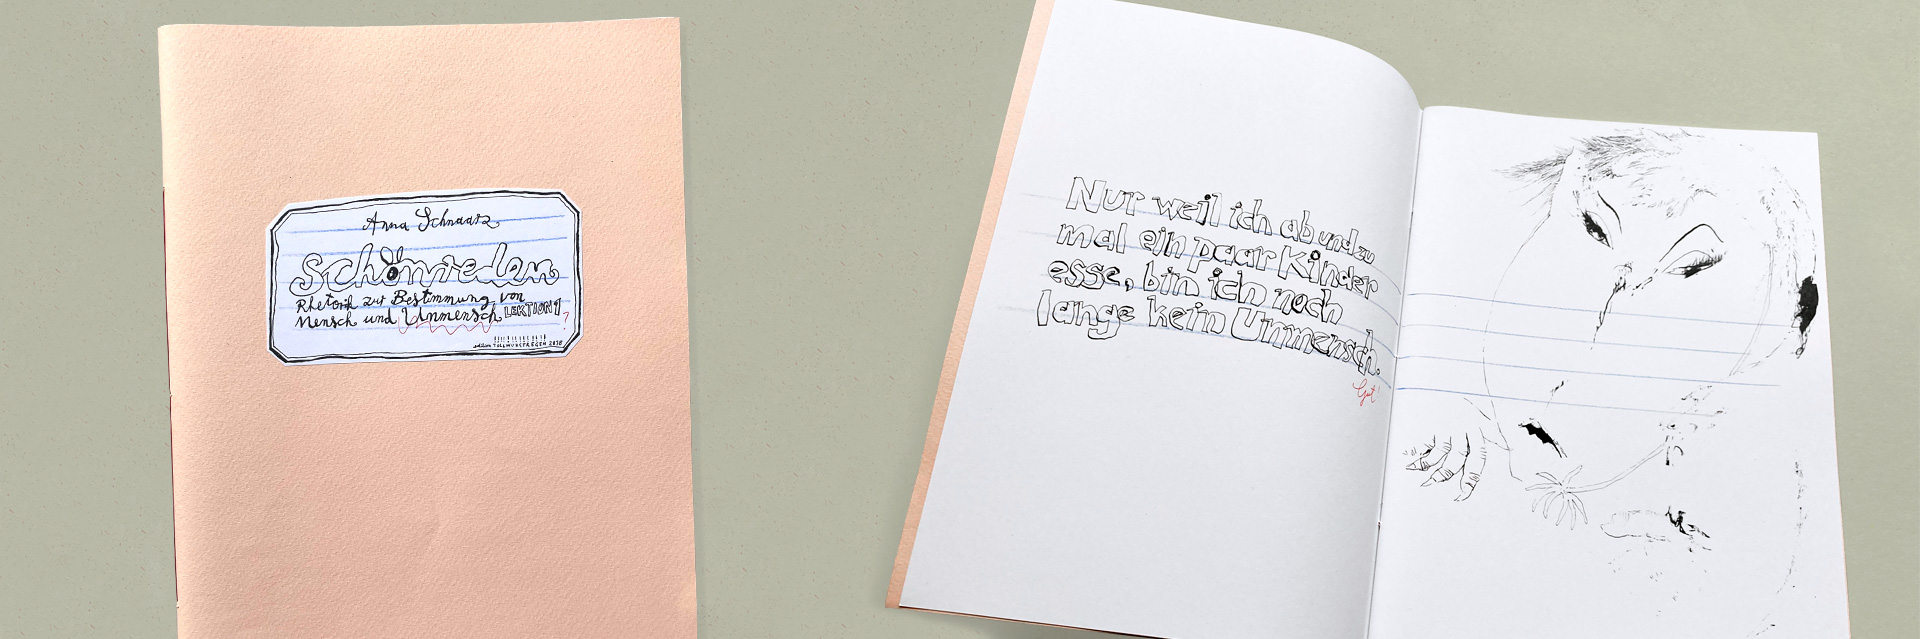 Anna Schnaatz
schönreden
Rhetorik zur Bestimmung von
Mensch und Unmensch LEKTION 1
?
edition TOLLWUETREGEN 2018
Nur weil ich ab und zu
mal ein paar Kinder
esse, bin ich noch
lange kein Unmensch.
Gut!